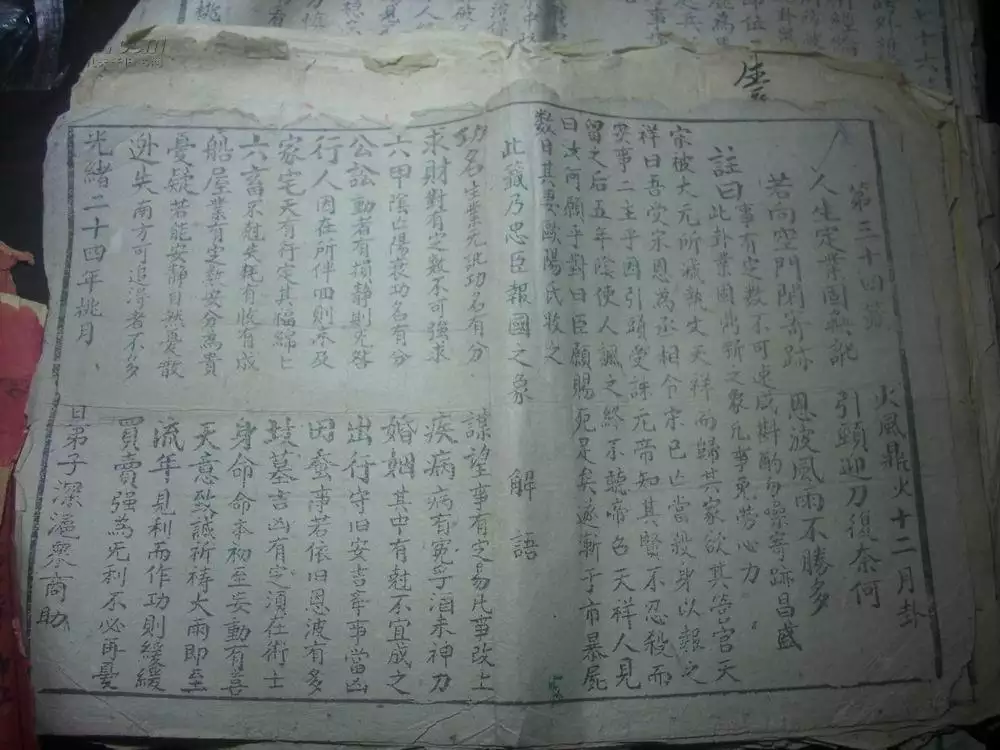 第三十四籤 火風鼎火十二月卦
人生定業固無訛 引頸迎刀復奈何
若向空門閒寄跡 恩波風雨不勝多
註曰此卦業固
事有定數不可速成斟酌 寄跡昌盛
之象凡事更勞心力
宋被大元所滅執文天祥而歸其家欲其 官天
祥曰吾受宋恩為丞相今宋已亡當殺身以報之
事二主乎因引頸受誅元帝知其賢不忍殺而
留之后五年陰使人諷之終不聽帝召天祥人見
曰汝何願乎對曰臣願賜死足矣遂斬于市暴屍
數日其妻歐陽氏收之
此籤乃忠臣報國之象 解語
功名 生業元 功名有分 謀望 事有定易凡事改上
求財 對有定數不可強求 疾病 病有冤孚酒未神刀
六甲 陰凸陽 功名有分 婚姻 其中有尅不宜成之
公訟 動者有損靜則无咎 出行 守旧安吉牽事當凶
行人 因在所伴四則未及 田蚕 事若依旧恩波有多
家宅 天有行定其福綿匕 坟墓 吉凶有定須在術士
六畜 不尅失耗有收有成 身命 命本初至妄動有
船屋 業有定數安分為貴 天意 致誠祈祷大雨即至
憂疑 若能安靜自然憂散 流年 見利而作功則緩緩
逃失 南方可追 者不多 買賣 强為无利不必再憂
光緒二十四年桃月 日弟子深滬眾商助